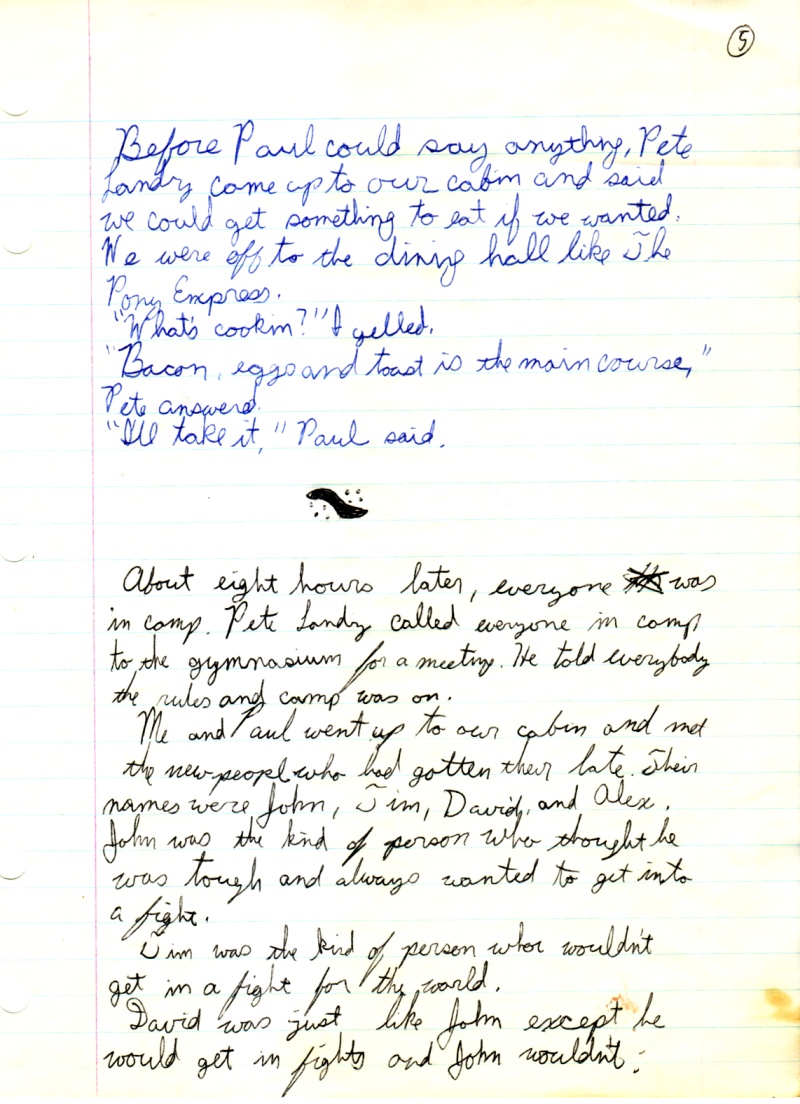 5
Before Paul could say anything, Pete
Landry came up to our cabin and said
we could get something to eat if we wanted.
We were off to the dining hall like The
Pony Express.
"What's cookin?" I yelled.
"Bacon, eggs and toast is the main course,"
Pete answered.
"I'll take it," Paul said.
About eight hours later, everyone was
in camp. Pete Landry called everyone in camp
to the gymnasium for a meeting. He told everybody
the rules and camp was on.
Me and Paul went up to our cabin and met
the new peopl who had gotten their late. Their
names were John, Tim, David, and Alex.
John was the kind of person who thought he
was tough and always wanted to get into
a fight.
Tim was the kind of person who wouldn't
get in a fight for the world.
David was just like John except he
would get in fights and John wouldn't.